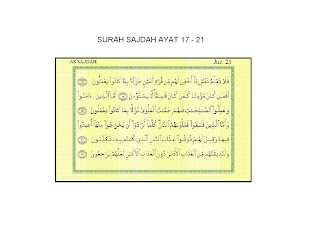 SURAH SAJDAH AYAT 17 - 21
AS SAJDAH Juz 21
فَلَا تَعْلَمُ نَفْسٌ مَّا أُخْفِيَ لَهُم مِّن قُرَّةِ أَعْيُنٍ جَزَاءً بِمَا كَانُوا يَعْمَلُونَ
أَفَمَن كَانَ مُؤْمِنًا كَمَن كَانَ فَاسِقًا لَّا يَسْتَوُونَ أَمَّا الَّذِينَ ءَامَنُوا
وَعَمِلُوا الصَّالِحَاتِ فَلَهُمْ جَنَّاتُ الْمَأْوَىٰ نُزُلًا بِمَا كَانُوا يَعْمَلُونَ
وَأَمَّا الَّذِينَ فَسَقُوا فَمَأْوَاهُمُ النَّارُ كُلَّمَا أَرَادُوا أَن يَخْرُجُوا مِنْهَا أُعِيدُوا
فِيهَا وَقِيلَ لَهُمْ ذُوقُوا عَذَابَ النَّارِ الَّذِي كُنتُم بِهِ تُكَذِّبُونَ
وَلَنُذِيقَنَّهُم مِّنَ الْعَذَابِ الْأَدْنَىٰ دُونَ الْعَذَابِ الْأَكْبَرِ لَعَلَّهُمْ يَرْجِعُونَ